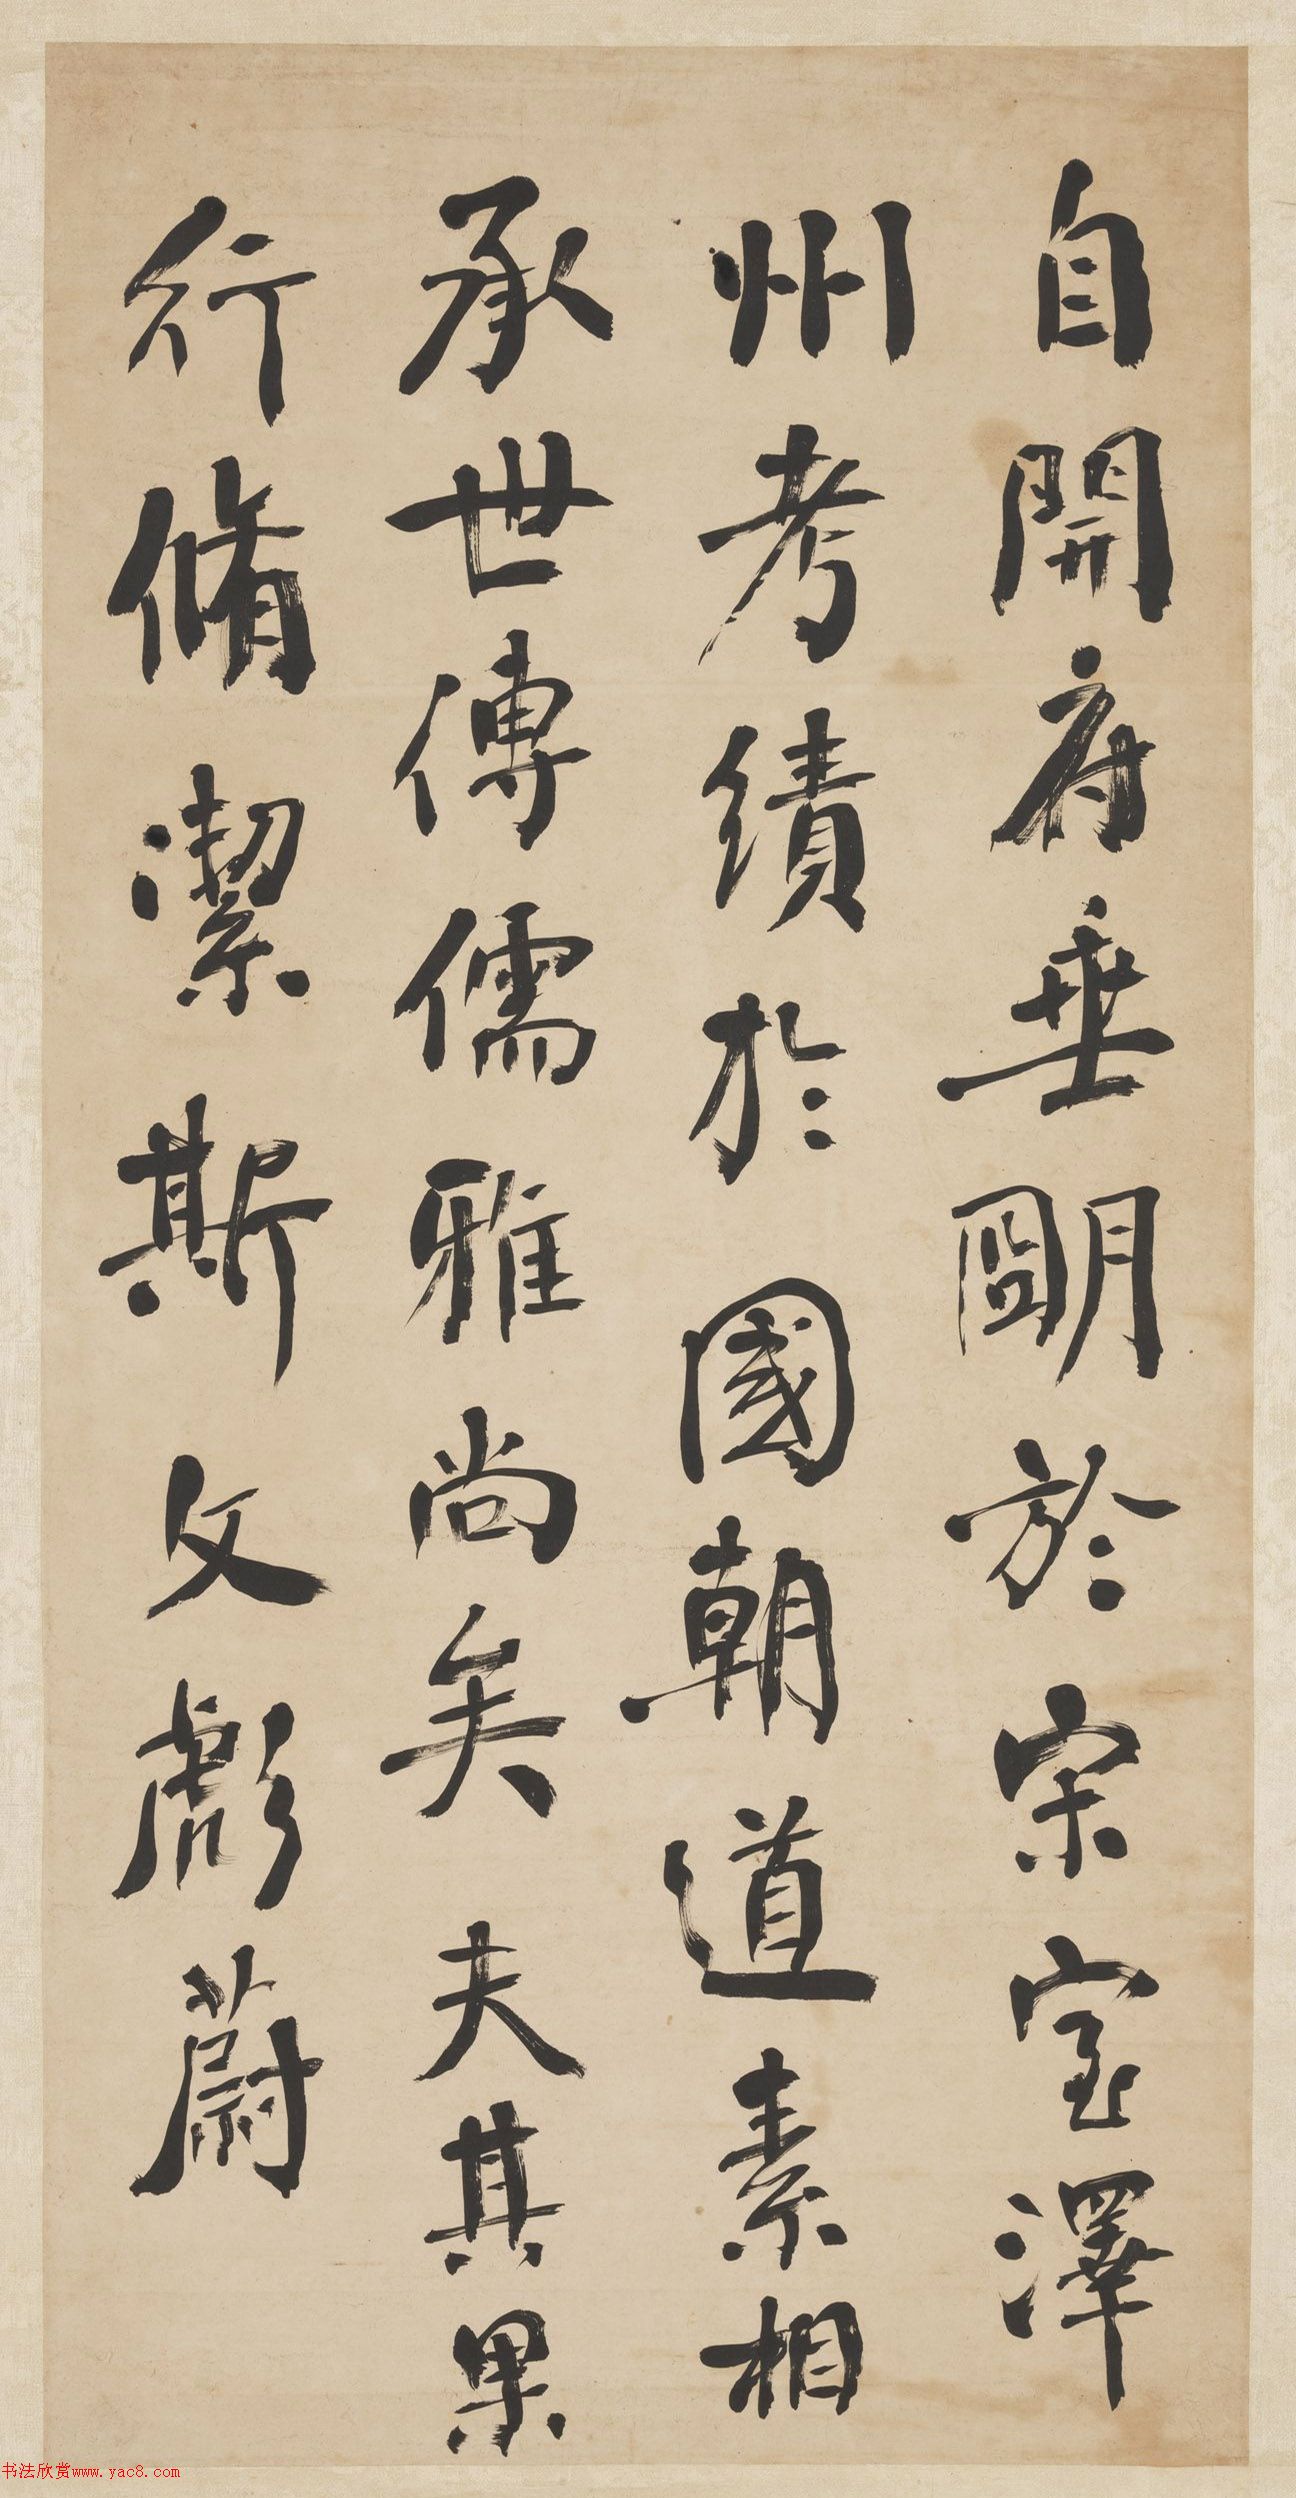 自開府垂朙於宗室澤
州考績於國朝道素相
承世傳儒雅尚矣夫其果
行脩潔斯文彪蔚
书法欣赏www.yac8.com